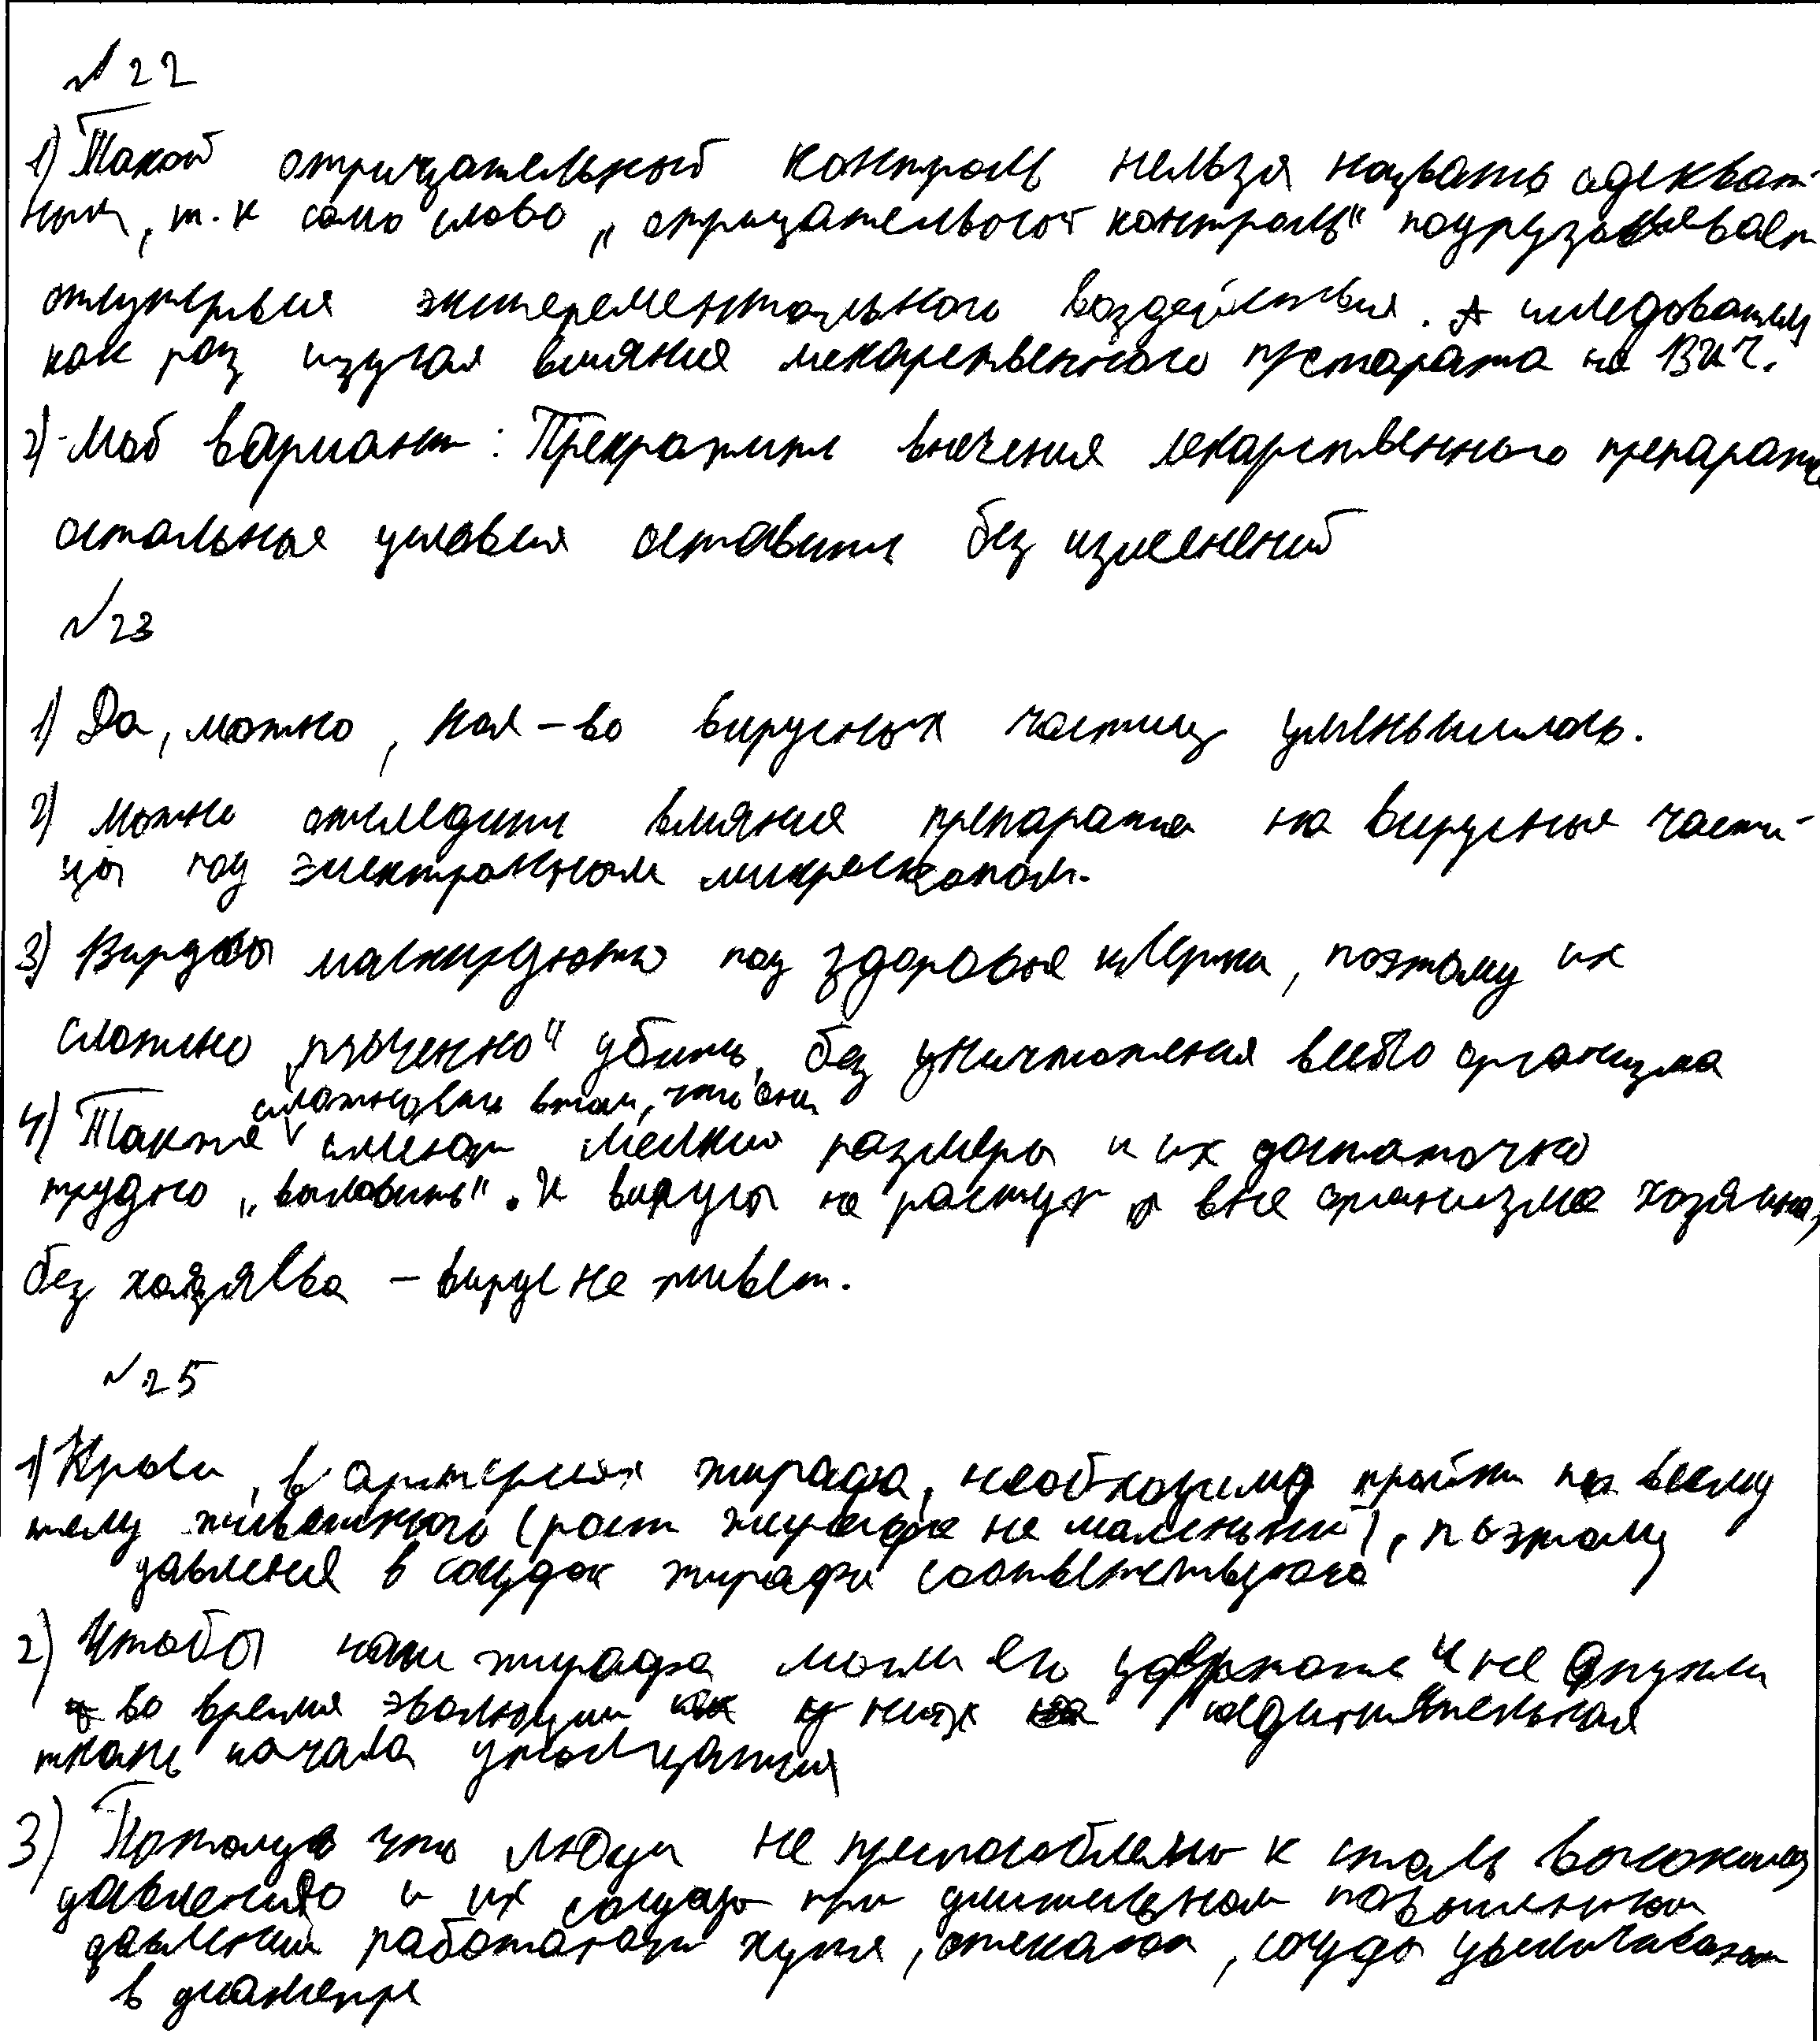 № 22
1) Такой отрицательный контроль нельзя назвать адекват-
ным, т.к само слово „отрицательной контроль" подразумевает
отсутствия эксперементального воздействия. А исследователи
как раз изучая влияния лекарственного препарата на ВИЧ.
2) Мой вариант: Прекратить влечения лекарственного препарата
остальные условия оставить без изменений
№23
1) Да, можно, кол-во вирусных частиц уменьшилось.
2) можно отследить влияния препарата на вирусные части-
цы под электронном микроскопом.
3) Вирусы маскируются под здоровые клетки, поэтому их
сложно „точечно" убить, без уничтожения всего организма
4) Также сложность в том, что они имеют мелкий размеры и их достаточно
трудно „выловить". И вирусы не растут вне организма хозяина,
без хозяева – вирус не живёт.
№ 25
1) Крови, в артериях жирафа, необходимо пройти по всему
телу животного (рост жирафа не маленький), поэтому
давления в сосудах жирафа соответствующее
2) Чтобы наши жирафа могли его удержать и не
во время эволюции у них соединительная
ткань начала утолщаться
3) Потому что люди не приспособлены к столь высокому
давлению и их сосуды при длительном повышенном
давлении работают хуже, отекают, сосуды увеличивают
в диаметре